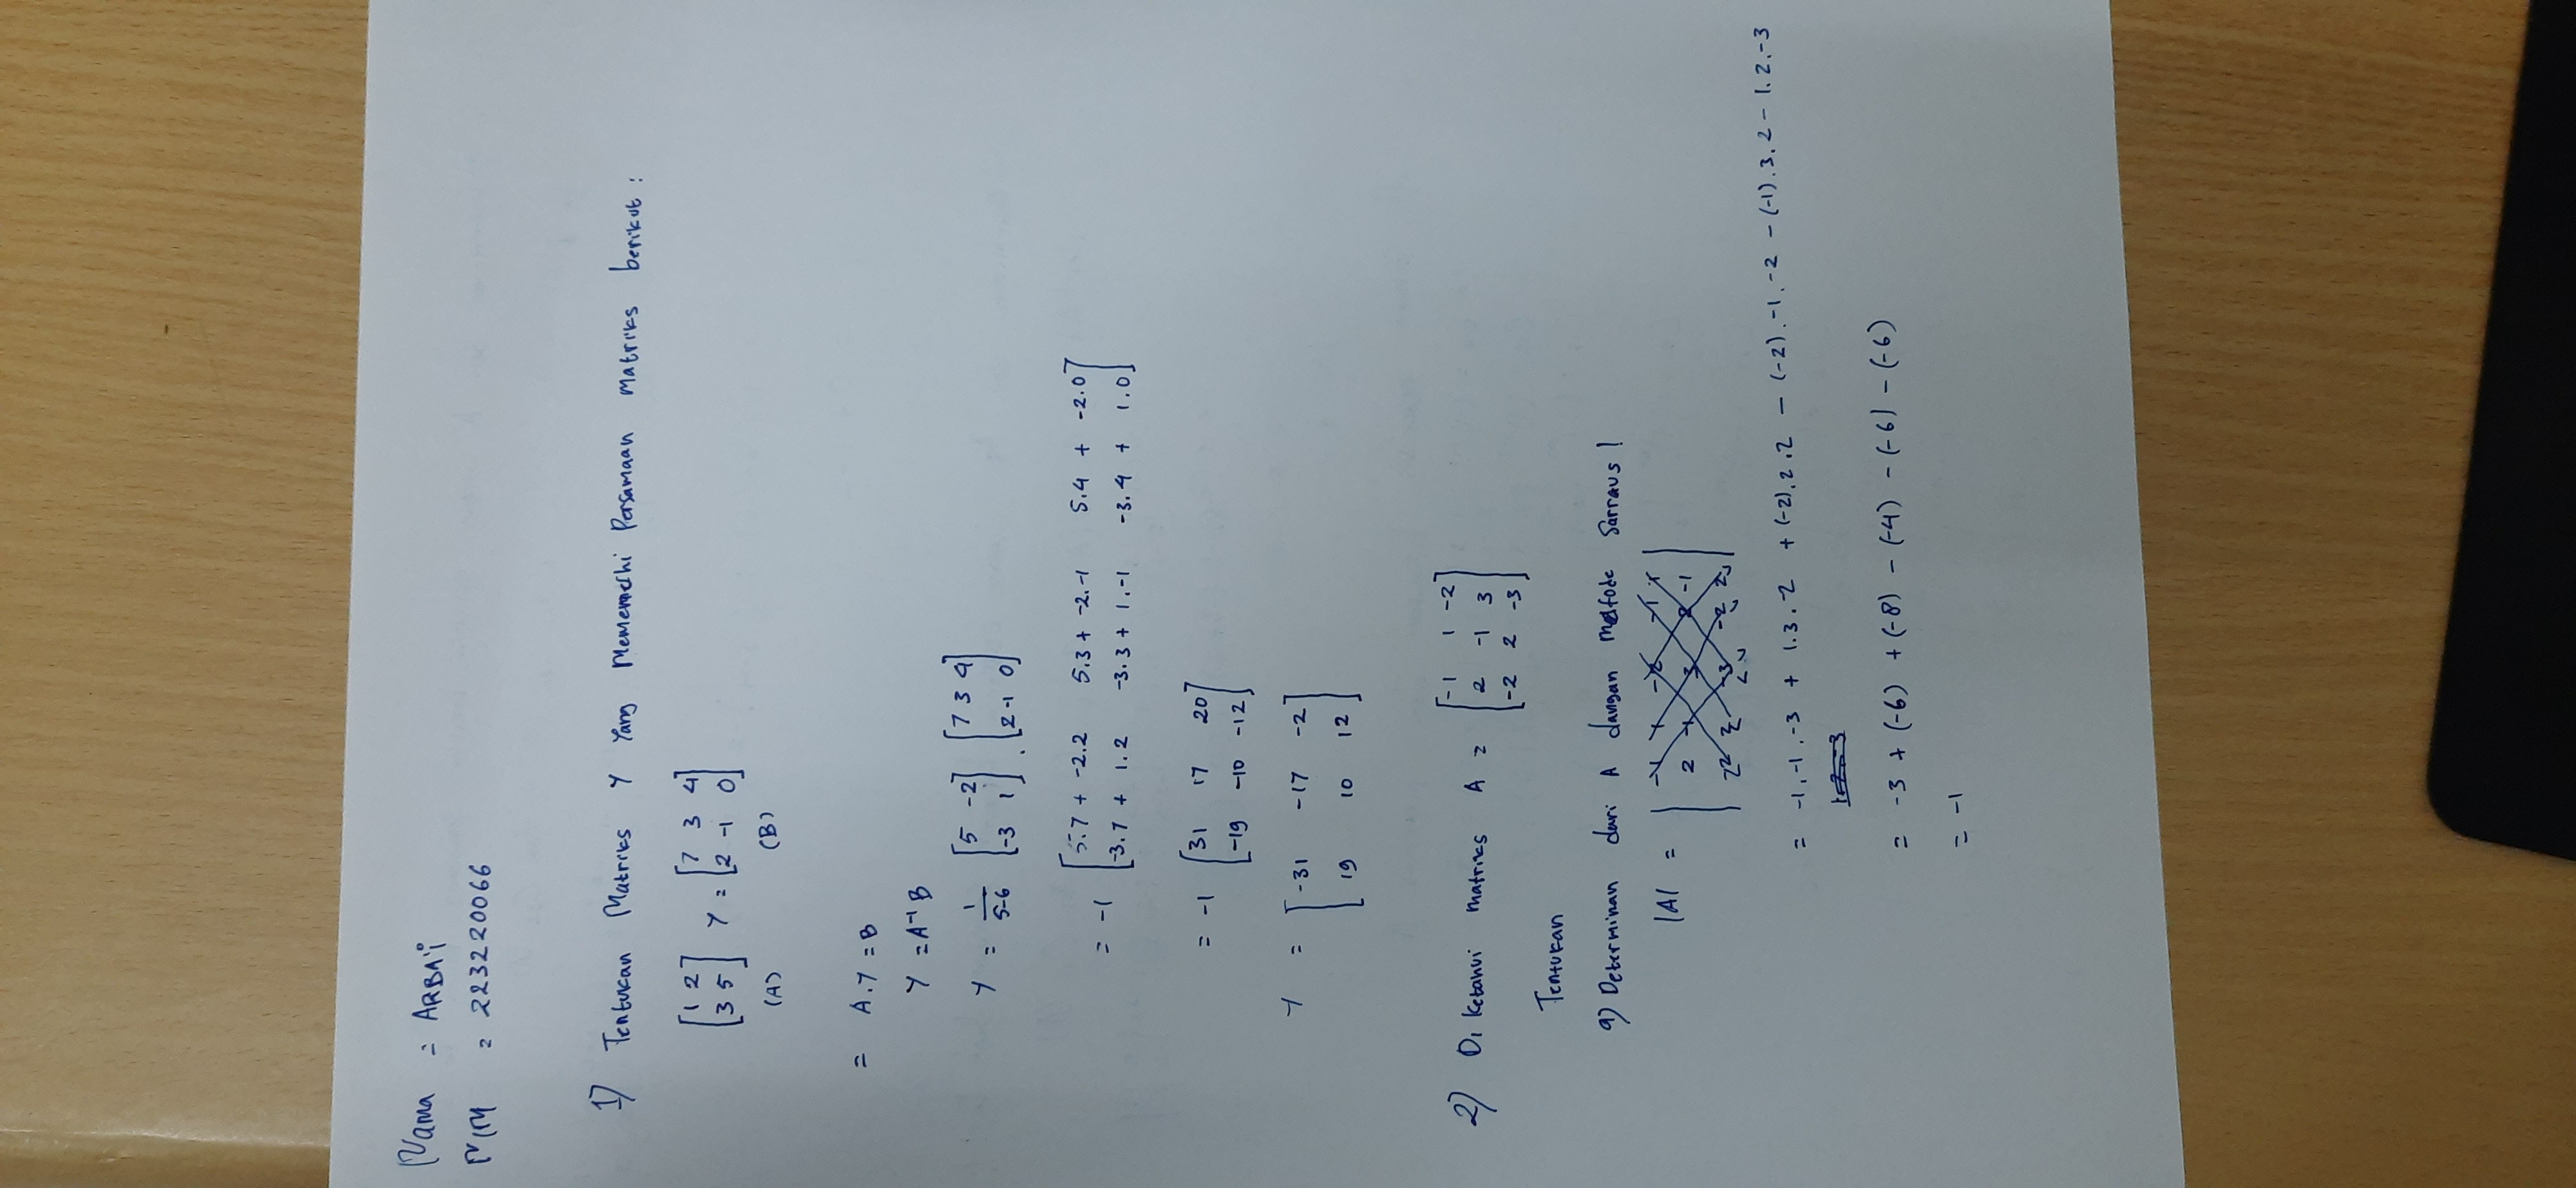 Nama = ARBA'i
NIM = 223220066
1) Tentukan Matriks Y Yang Memenuhi Persamaan matriks berikut :
[1 2] Y = [7 3 4]
[3 5] [2 -1 0]
(A) (B)
= A.Y = B
Y = A⁻¹ B
Y = 1/5-6 [5 -2] . [7 3 4]
[-3 1] [2 -1 0]
= -1 [5.7 + -2.2 5.3 + -2.-1 5.4 + -2.0]
[-3.7 + 1.2 -3.3 + 1.-1 -3.4 + 1.0]
= -1 [31 17 20]
[-19 -10 -12]
Y = [-31 -17 -2]
[19 10 12]
2) Di Ketahui matriks A = [-1 1 -2]
[2 -1 3]
[-2 2 -3]
Tentukan
a) Determinan dari A dangan metode Sarraus !
|A| = | -1 1 -2 -1 1 |
| 2 -1 3 2 -1 |
| -2 2 -3 -2 2 |
= -1.-1.-3 + 1.3.-2 + (-2).2.2 - (-2).-1.-2 - (-1).3.2 - 1.2.-3
= -3 + (-6) + (-8) - (-4) - (-6) - (-6)
= -1